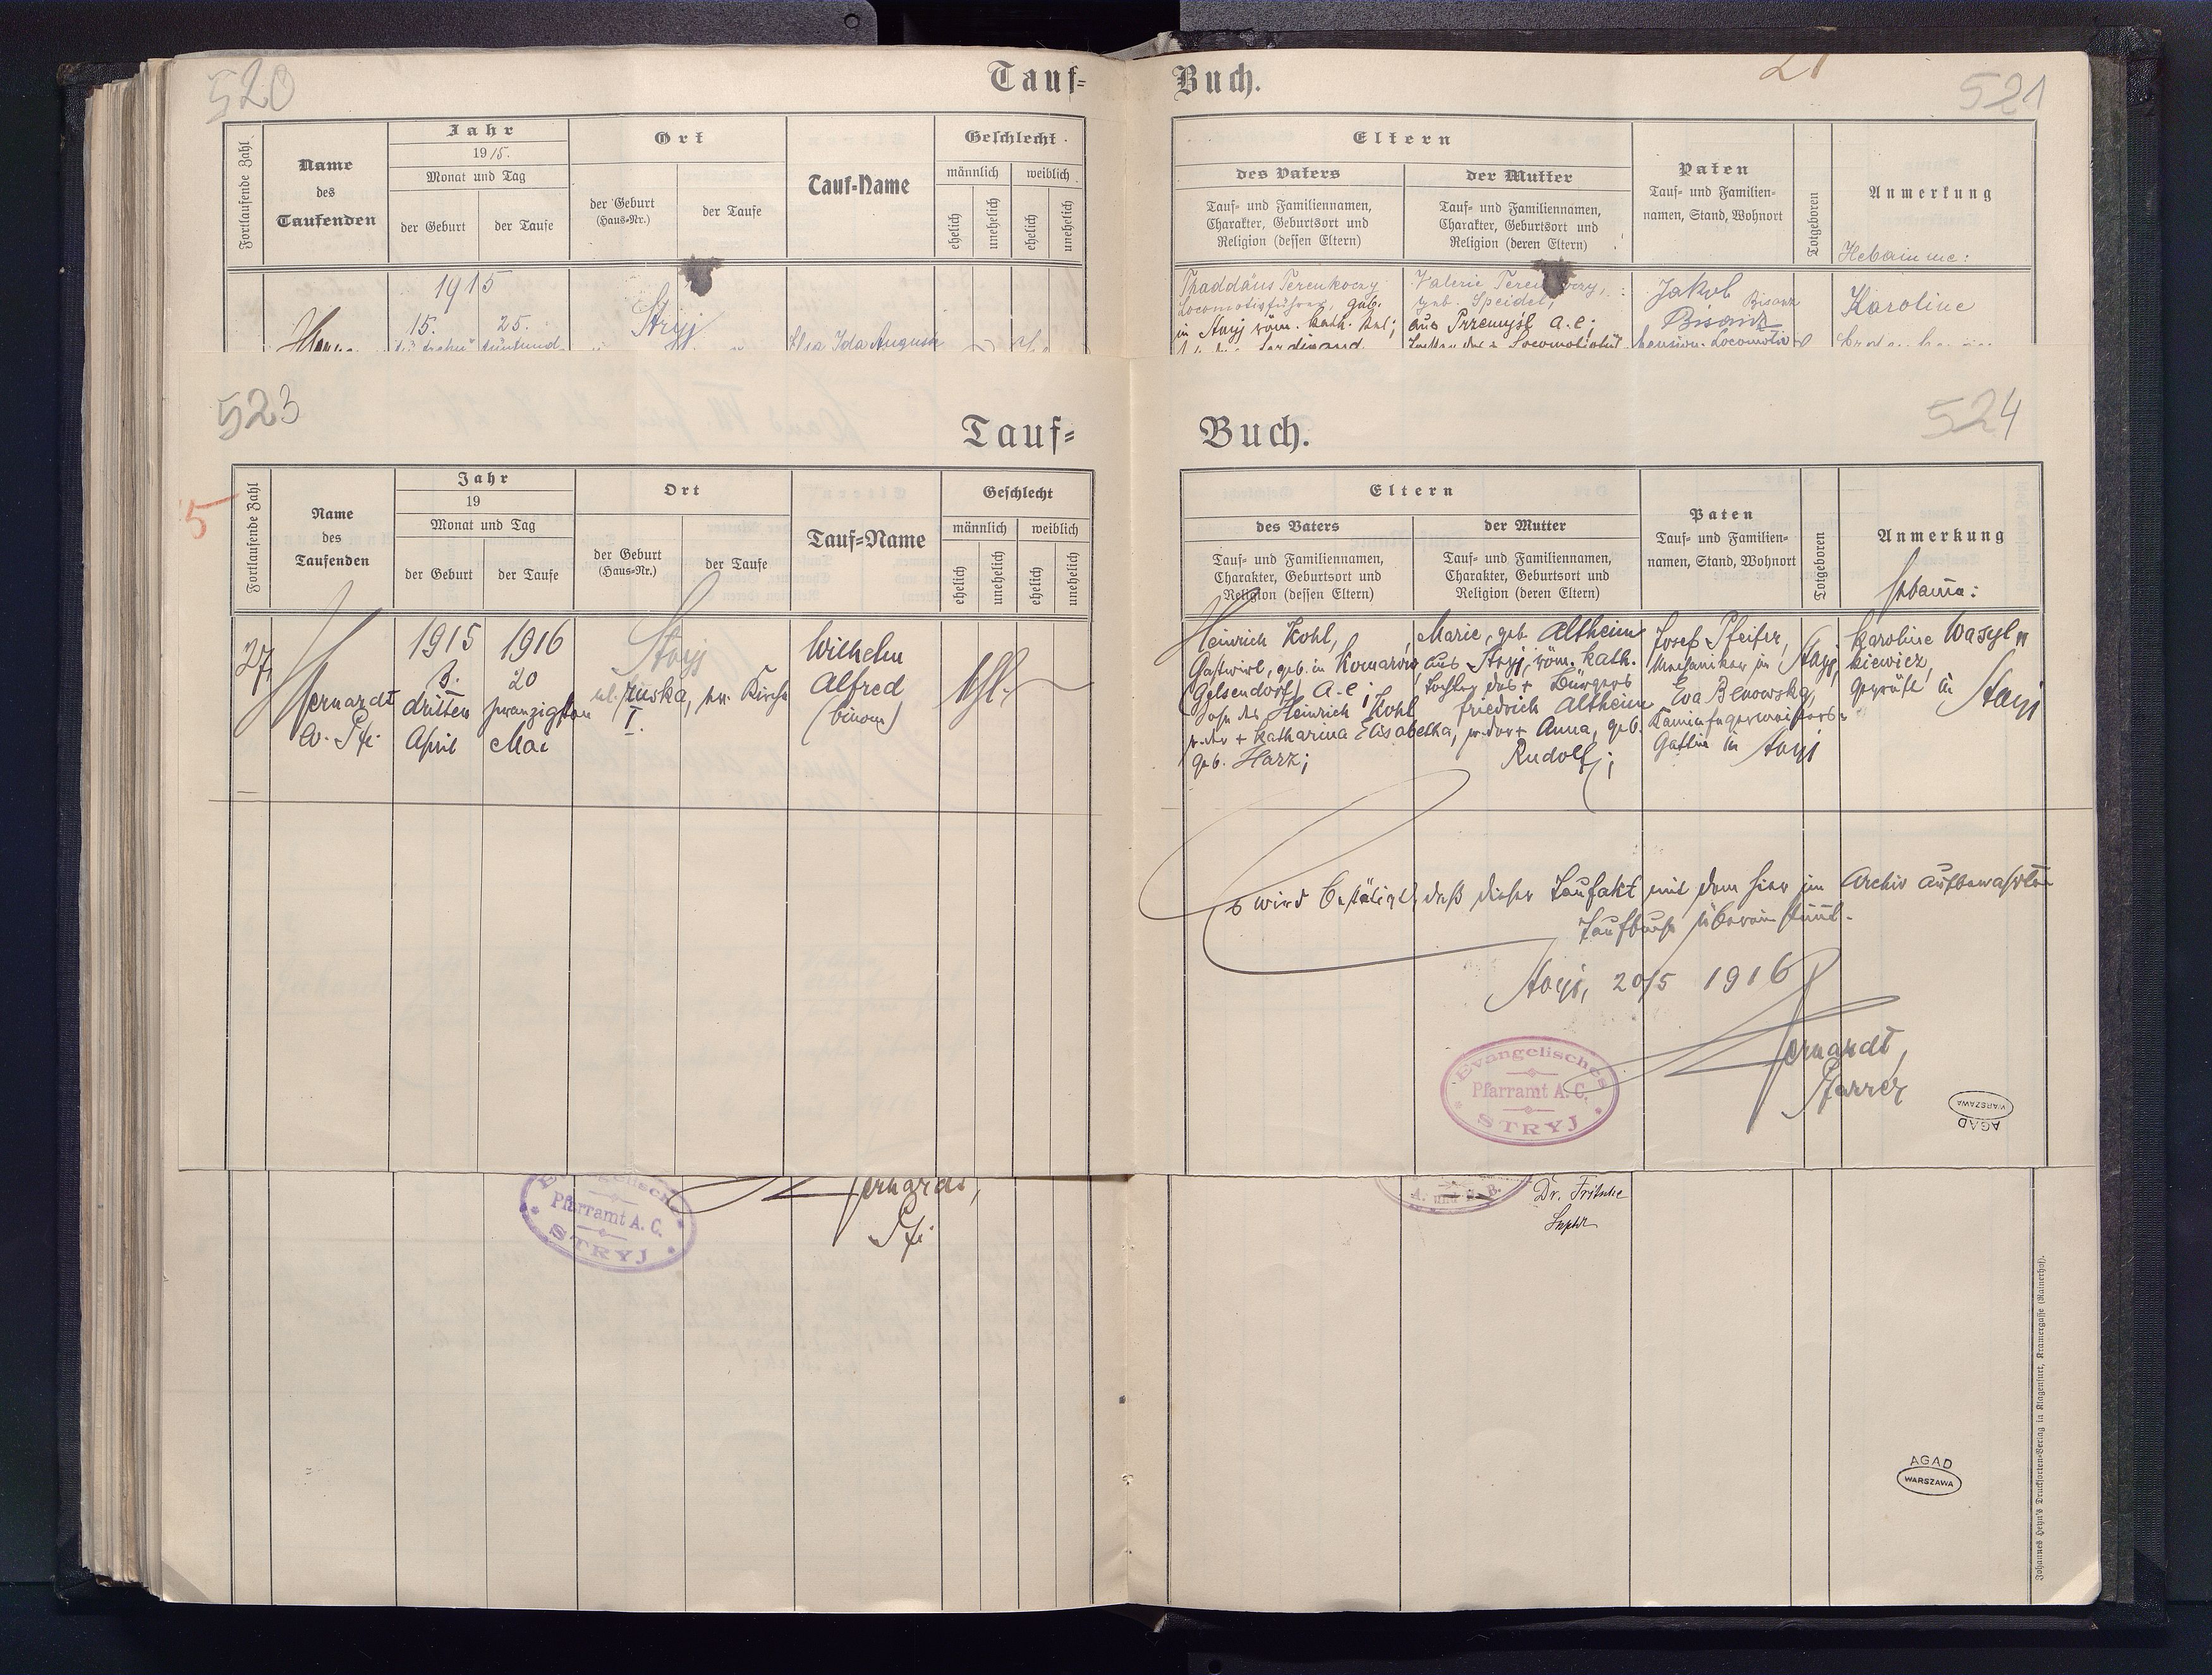 520
Tauf=
Buch.
21
521
Fortlaufende Zahl
Name
des
Taufenden
Jahr
1915.
Monat und Tag
der Geburt
der Taufe
Ort
der Geburt
(Haus=Nr.)
der Taufe
Tauf=Name
Geschlecht
männlich
weiblich
ehelich
unehelich
ehelich
unehelich
Eltern
des Vaters
Tauf= und Familiennamen,
Charakter, Geburtsort und
Religion (dessen Eltern)
der Mutter
Tauf= und Familiennamen,
Charakter, Geburtsort und
Religion (deren Eltern)
Paten
Tauf= und Familien=
namen, Stand, Wohnort
Totgeboren
Anmerkung
Hebamme:
1915
15.
25.
Stryj
Elsa Ida August
Thaddäus Terenkoczy
Locomotivführer, geb.
in Stryj röm. kath. Rel;
Ferdinand
Valerie
geb. Speidel,
aus Przemyśl A. C;
Jakob Bisanz
Bisanz
pension. Locomotiv
Karoline
523
Tauf=
Buch.
524
5
Fortlaufende Zahl
Name
des
Taufenden
Jahr
19
Monat und Tag
der Geburt
der Taufe
Ort
der Geburt
(Haus=Nr.)
der Taufe
Tauf=Name
Geschlecht
männlich
weiblich
ehelich
unehelich
ehelich
unehelich
Eltern
des Vaters
Tauf= und Familiennamen,
Charakter, Geburtsort und
Religion (dessen Eltern)
der Mutter
Tauf= und Familiennamen,
Charakter, Geburtsort und
Religion (deren Eltern)
Paten
Tauf= und Familien=
namen, Stand, Wohnort
Totgeboren
Anmerkung
Hebamme:
27,
ev. Pfr.
1915
3.
dritten
April
1916
20
zwanzigsten
Mai
Stryj
ul. ruska, ev. Kirche
I.
Wilhelm
Alfred
(binom)
Ehl.
Heinrich Kohl,
Gastwirt, geb. in Komarów
(Gelsendorf) A. C;
Sohn des Heinrich Kohl
u. der + Katharina Elisabetha,
geb. Harz;
Marie, geb. Altheim
aus Stryj, röm. kath.
Tochter des + Bürgers
Friedrich Altheim
u. der + Anna, geb.
Rudolf;
Josef Pfeifer,
Mechaniker in Stryj,
Eva Benowska,
Kaminfegermeisters=
Gattin in Stryj
Karoline Wasyln
kiewicz,
geprüft in Stryj
Es wird bestätigt, daß dieser Taufakt mit dem hier im Archiv aufbewahrten
Taufbuch übereinstimmt.
Stryj, 20/5 1916
Pfarrer
Evangelisches
Pfarramt A. C.
STRYJ
AGAD
WARSZAWA
Evangelisches
Pfarramt A. C.
STRYJ
Pfr.
A. und H. B.
Dr. Fritsche
Supdt
AGAD
WARSZAWA
Johannes Heyn's Drucksorten=Verlag in Klagenfurt, Kramergasse (Rainerhof).